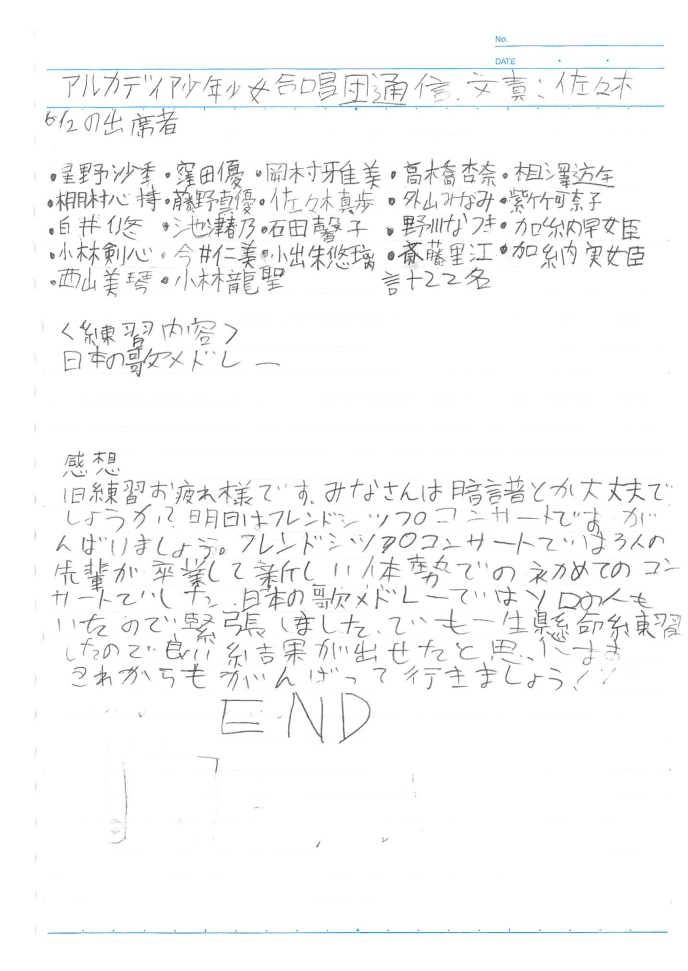 No.
DATE
アルカディア少年少女合唱団通信.文責:佐々木
6/2の出席者
・星野沙季・窪田優・岡村雅美・高橋杏奈・相澤
・棚村心持・藤野真優・佐々木真歩・外山みなみ・紫竹可奈子
・白井悠・池津乃・石田馨子・野川なつき・加納早女臣
・小林剣心・今井仁美・小出朱悠璃・斎藤里江・加納実女臣
・西山美琴・小林龍聖 計22名
〈練習内容〉
日本の歌メドレー
感想
旧練習お疲れ様です.みなさんは暗譜とか大丈夫で
しょうか?明日はフレンドシップコンサートです。が
んばりましょう。フレンドシップコンサートでは3人の
先輩が卒業して新しい体勢での初めてのコン
サートでした.日本の歌メドレーではソロの人も
いたので緊張しました.でも一生懸命練習
したので良い結果が出せたと思います
これからもがんばって行きましょう!!
END